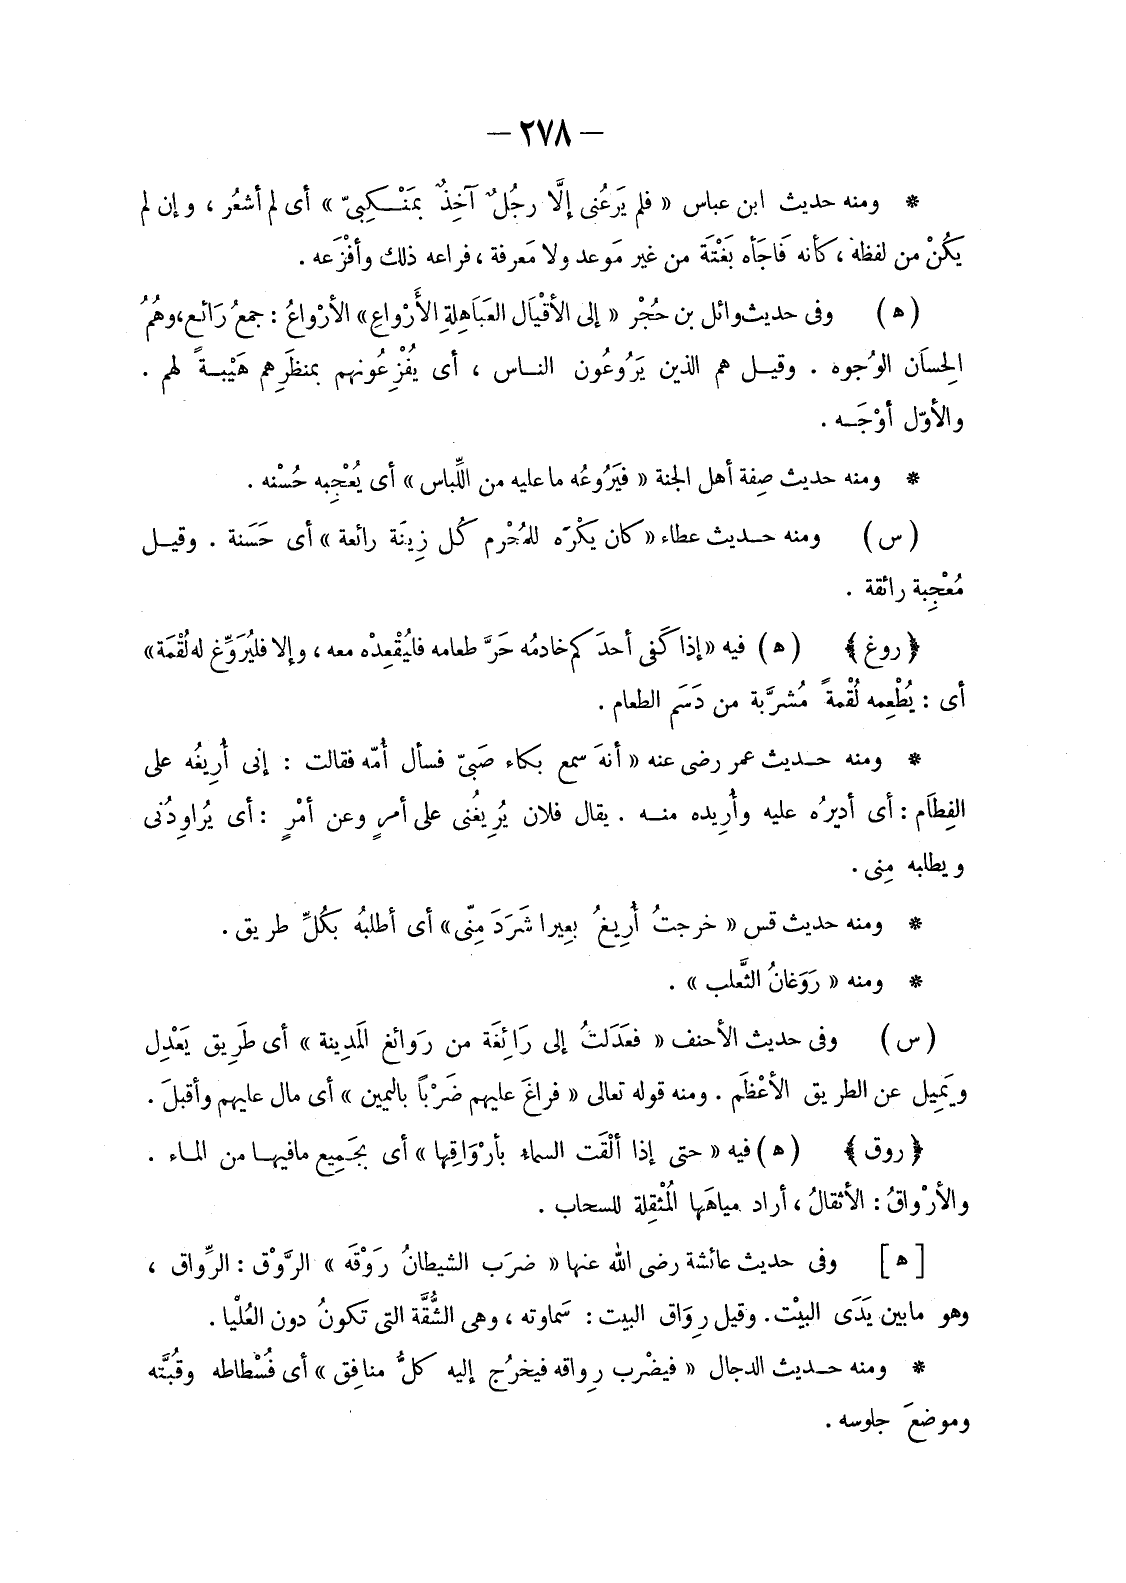 — ٢٧٨ —
* ومنه حديث ابن عباس « فلم يَرَعُنى إلَّا رجُلٌ آخِذٌ بمَنْـكِبىّ » أى لم أشعُر ، وإن لم
يكُنْ من لفظه ، كأنه فَاجَأه بَغْتَة من غير مَوعد ولا مَعرفة ، فراعه ذلك وأفْزَعه .
( ه ) وفى حديث وائل بن حُجْر « إلى الأقْيَال العَبَاهِلةِ الأَرْواعِ » الأرْواعُ : جمعُ رَائع، وهُمُ
الحِسَان الوُجوه . وقيـل هم الذين يَرُوعُون النـاس ، أى يُفْزِعُونهم بمنظَرِهم هَيْبـةً لهم .
والأوّل أوْجَـه .
* ومنه حديث صِفة أهل الجنة « فيَرُوعُه ما عليه من اللِّباس » أى يُعْجِبه حُسْنه .
( س ) ومنه حـديث عطاء « كان يَكْرَه للمُحْرِم كُل زِينَة رائعة » أى حَسَنة . وقيـل
مُعْجِبة رائقة .
﴿ روغ ﴾ ( ه ) فيه « إذا كَفى أحدَكم خادمُه حَرَّ طعامه فليُقْعِدْه معه ، وإلا فليُرَوِّغ له لُقْمَة »
أى : يُطْعِمه لُقْمةً مُشرَّبة من دَسَم الطعام .
* ومنه حـديث عمر رضى عنه « أنهَ سمع بكاء صَبىّ فسأل أُمّه فقالت : إنى أُرِيغُه على
الفِطَام : أى أديرُه عليه وأُرِيده منـه . يقال فلان يُرِيغُنى على أمرٍ وعن أمْرٍ : أى يُراوِدُنى
ويطلبه مِنى .
* ومنه حديث قس « خرجتُ أُرِيغُ بعِيرا شَرَدَ مِنّى » أى أطلبُه بكُلِّ طريق .
* ومنه « رَوَغانُ الثَّعلب » .
( س ) وفى حديث الأحنف « فعَدَلتُ إلى رَائِغَة من رَوائغ المَدِينة » أى طَرِيق يَعْدِل
ويَمِيل عن الطريق الأعْظَم . ومنه قوله تعالى « فراغَ عليهم ضَرْبًا باليمين » أى مال عليهم وأقبلَ .
﴿ روق ﴾ ( ه ) فيه « حتى إذا ألْقَت السماء بأرْوَاقِها » أى بجَمِيع مافيهـا من المـاء .
والأرْواقُ : الأثقالُ ، أراد مياهَها المُثْقِلة للسحاب .
[ ه ] وفى حديث عائشة رضى الله عنها « ضرَب الشيطانُ رَوْقَه » الرَّوْق : الرِّواق ،
وهو مابين يَدَى البيْت. وقيل رِوَاق البيت : سَماوته ، وهى الشُّقَّة التى تَكونُ دون العُلْيا .
* ومنه حـديث الدجال « فيضْرب رِواقه فيخرُج إليه كلُّ منافِق » أى فُسْطاطه وقُبَّته
وموضعَ جلوسه .